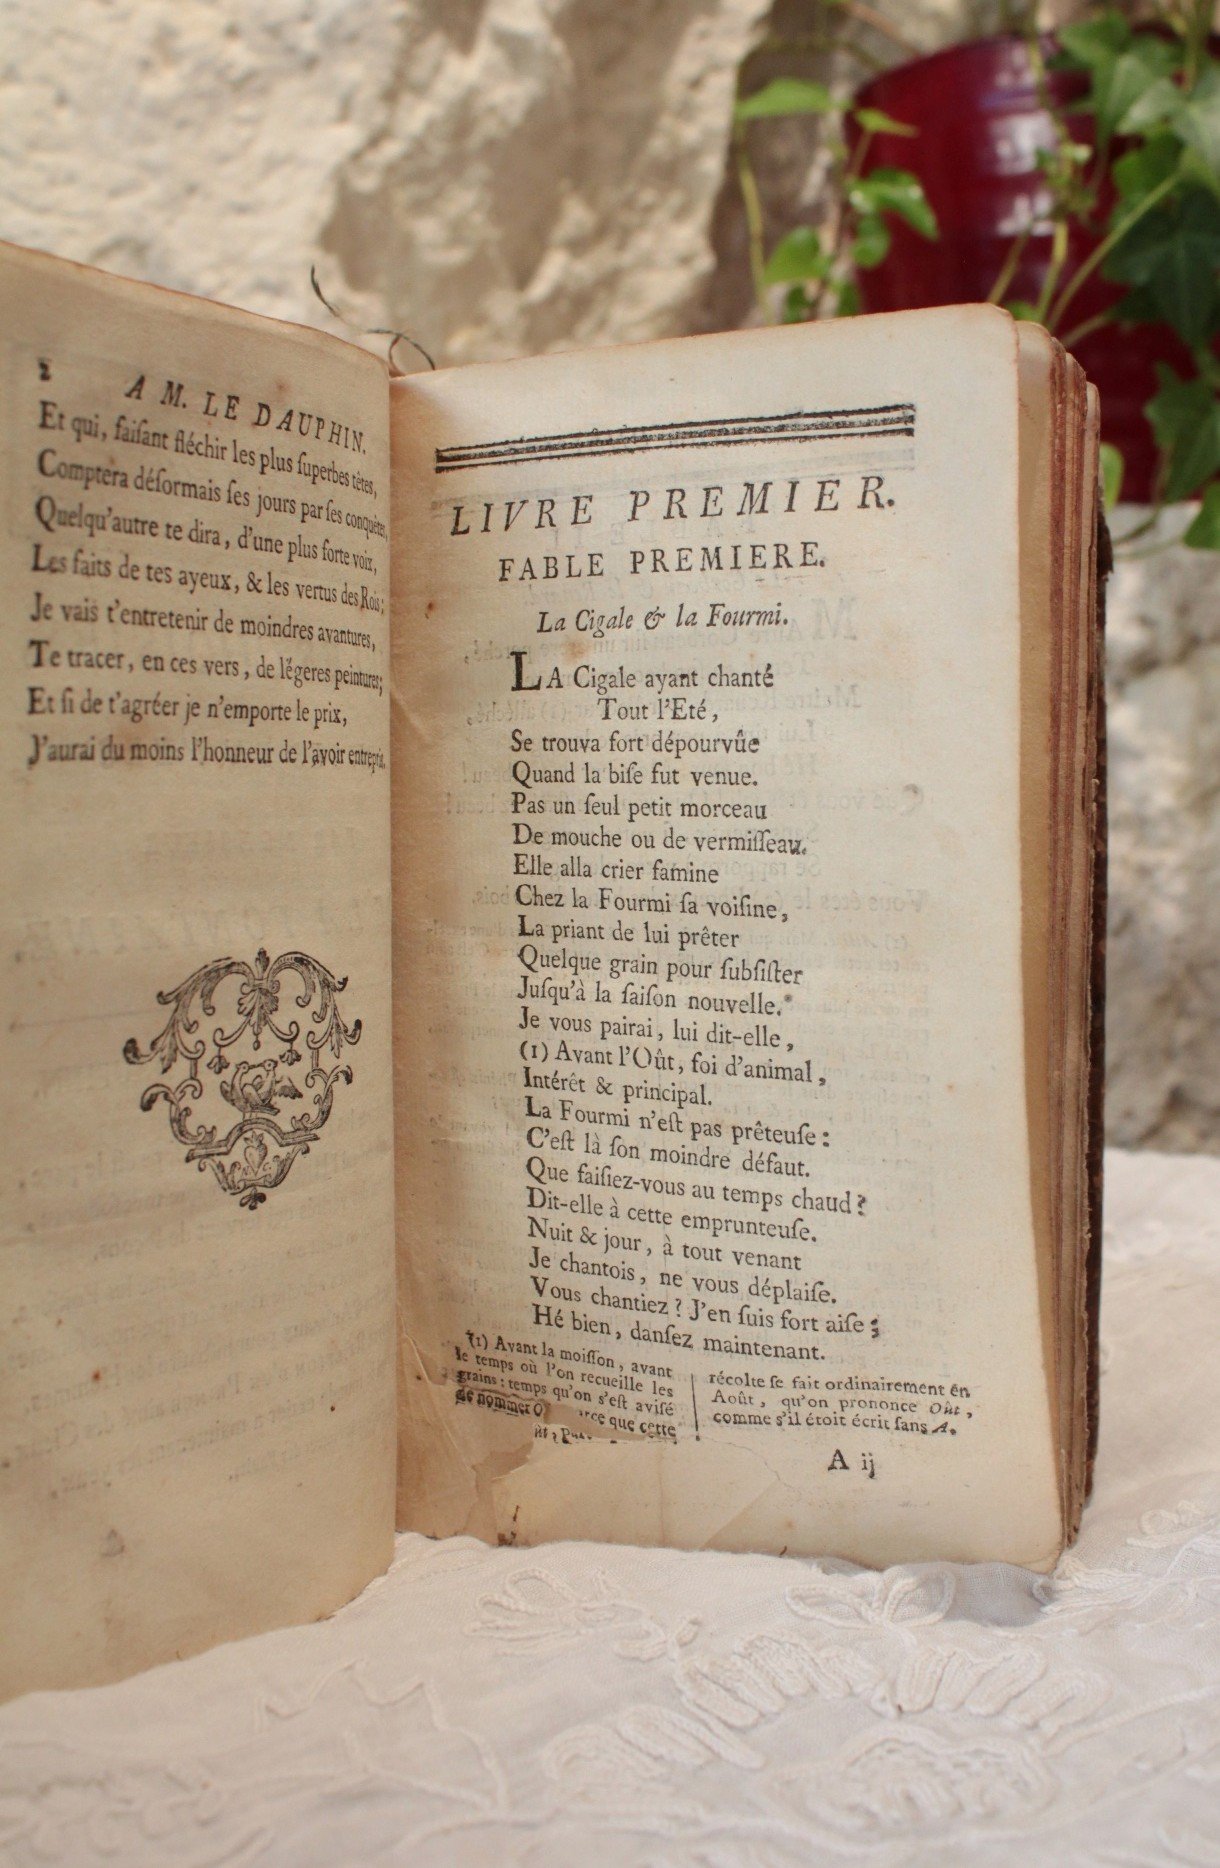 2
A M. LE DAUPHIN.
Et qui, faiſant fléchir les plus ſuperbes têtes,
Comptera déſormais ſes jours par ſes conquêtes,
Quelqu'autre te dira, d'une plus forte voix,
Les faits de tes ayeux, & les vertus des Rois;
Je vais t'entretenir de moindres avantures,
Te tracer, en ces vers, de légeres peintures;
Et ſi de t'agréer je n'emporte le prix,
J'aurai du moins l'honneur de l'avoir entrepris.
LIVRE PREMIER.
FABLE PREMIERE.
La Cigale & la Fourmi.
LA Cigale ayant chanté
Tout l'Eté,
Se trouva fort dépourvûe
Quand la biſe fut venue.
Pas un ſeul petit morceau
De mouche ou de vermiſſeau.
Elle alla crier famine
Chez la Fourmi ſa voiſine,
La priant de lui prêter
Quelque grain pour ſubſiſter
Juſqu'à la ſaiſon nouvelle.
Je vous pairai, lui dit-elle,
(1) Avant l'Oût, foi d'animal,
Intérêt & principal.
La Fourmi n'eſt pas prêteuſe:
C'eſt là ſon moindre défaut.
Que faiſiez-vous au temps chaud?
Dit-elle à cette emprunteuſe.
Nuit & jour, à tout venant
Je chantois, ne vous déplaiſe.
Vous chantiez? J'en ſuis fort aiſe;
Hé bien, danſez maintenant.
(1) Avant la moiſſon, avant
le temps où l'on recueille les
grains: temps qu'on s'eſt aviſé
de nommer
que cette
récolte ſe fait ordinairement en
Août, qu'on prononce Oût,
comme s'il étoit écrit ſans A.
A ij